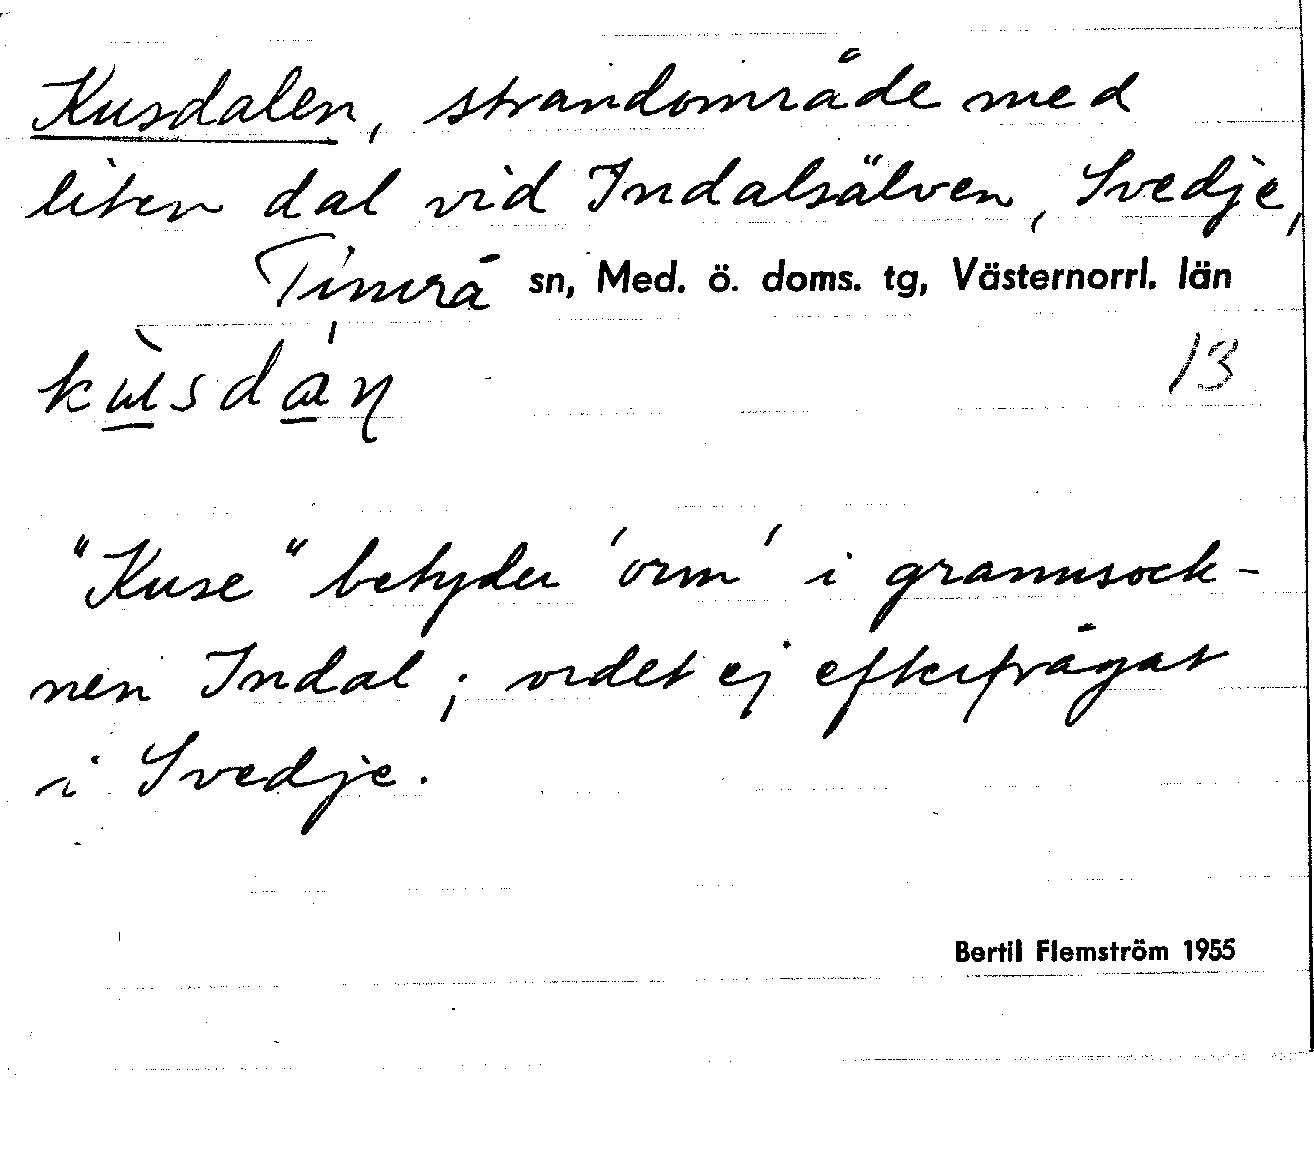 Kusdalen, strandområde med
liten dal vid Indalsälven, Svedje,
Timrå sn, Med. ö. doms. tg, Västernorrl. län
kùsdán
13
"Kuse" betyder 'orm' i grannsock-
nen Indal; ordet ej efterfrågat
i Svedje.
Bertil Flemström 1955